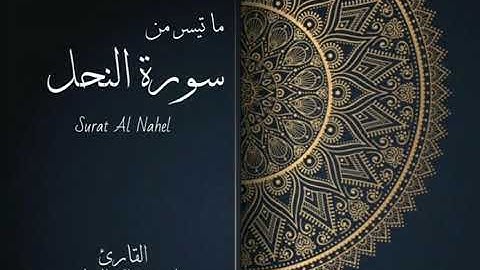 ما تيسر من
سورة النحل
Surat Al Nahel
القارئ